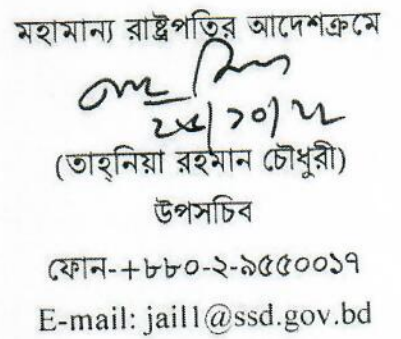 মহামান্য রাষ্ট্রপতির আদেশক্রমে
২৫/১০/২২
(তাহ্‌নিয়া রহমান চৌধুরী)
উপসচিব
ফোন-+৮৮০-২-৯৫৫০০১৭
E-mail: jail1@ssd.gov.bd